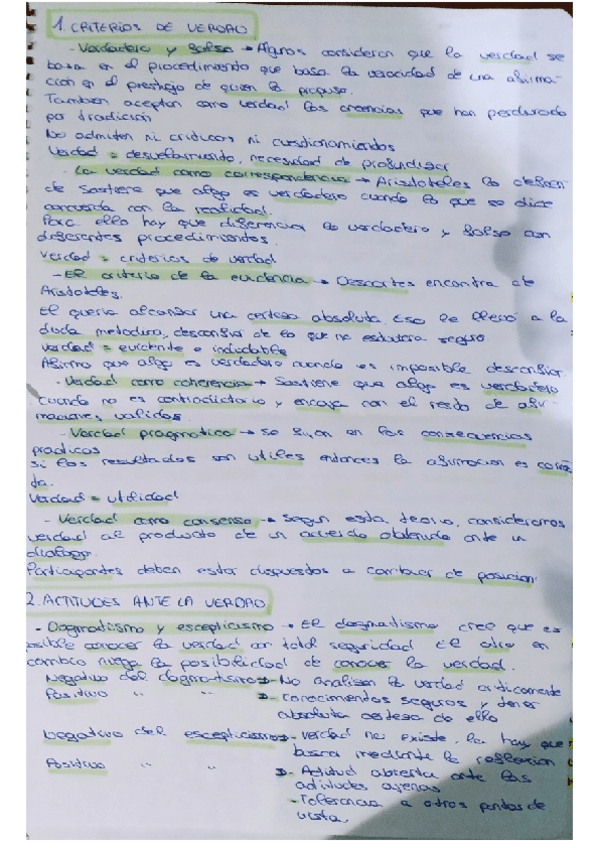 1. CRITERIOS DE VERDAD
- Verdadero y falso → Algunos consideran que la verdad se
basa en el procedimiento que basa la veracidad de una afirma-
ción en el prestigio de quien la propuso.
También aceptan como verdad las creencias que han perdurado
por tradición
No admiten ni críticas ni cuestionamientos
Verdad = desvelamiento, necesidad de profundizar
- La verdad como correspondencia → Aristóteles la defien-
de sostiene que algo es verdadero cuando lo que se dice
concuerda con la realidad.
Para ello hay que diferenciar lo verdadero y falso con
diferentes procedimientos.
Verdad = criterios de verdad
- El criterio de la evidencia → Descartes encontra de
Aristóteles.
El quería alcanzar una certeza absoluta. Eso le llevó a la
duda metódica, desconfiar de lo que no estuviera seguro.
Verdad = evidente e indudable
Afirmo que algo es verdadero cuando es imposible desconfiar.
- Verdad como coherencia → Sostiene que algo es verdadero
cuando no es contradictorio y encaja con el resto de afir-
maciones válidas.
- Verdad pragmática → se fijan en las consecuencias
prácticas
si los resultados son utiles entonces la afirmación es correc-
ta.
Verdad = utilidad
- Verdad como consenso → según esta teoría, consideramos
verdad al producto de un acuerdo obtenido ante un
diálogo.
Participantes deben estar dispuestos a cambiar de posición
2. ACTITUDES ANTE LA VERDAD
- Dogmatismo y escepticismo → El dogmatismo cree que es
posible conocer la verdad con total seguridad El otro en
cambio niega la posibilidad de conocer la verdad.
Negativo del dogmatismo - No analizan la verdad críticamente
Positivo " " - Conocimientos seguros y tener
absoluta certeza de ello
Negativo del escepticismo - Verdad no existe, la hay que
buscar mediante la reflexión
Positivo " " - Actitud abierta ante las
actitudes ajenas
- Tolerancia a otros puntos de
vista.